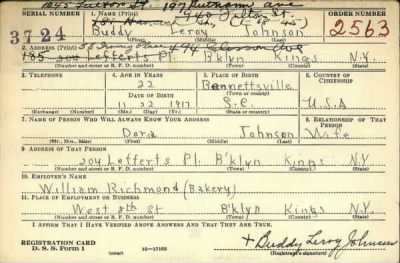 1245 Fulton St. 199 Putnam ave
SERIAL NUMBER 1. NAME (Print) ORDER NUMBER
3724 Buddy Leroy Johnson 2563
(First) (Middle) (Last)
2. ADDRESS (Print) 58 Irving Place 494 Classon Ave
185 204 Lefferts Pl. B'klyn Kings N.Y.
(Number and street or R. F. D. number) (Town) (County) (State)
3. TELEPHONE 4. AGE IN YEARS 5. PLACE OF BIRTH 6. COUNTRY OF CITIZENSHIP
22 Bennettsville
DATE OF BIRTH
11 22 1917 S.C. U.S.A
(Exchange) (Number) (Mo.) (Day) (Yr.) (State or country)
7. NAME OF PERSON WHO WILL ALWAYS KNOW YOUR ADDRESS 8. RELATIONSHIP OF THAT PERSON
Dora Johnson Wife
(Mr., Mrs., Miss) (First) (Middle) (Last)
9. ADDRESS OF THAT PERSON
204 Lefferts Pl. B'klyn Kings N.Y
(Number and street or R. F. D. number) (Town) (County) (State)
10. EMPLOYER'S NAME
William Richmond (Bakery)
11. PLACE OF EMPLOYMENT OR BUSINESS
West 8th St B'klyn Kings N.Y
(Number and street or R. F. D. number) (Town) (County) (State)
I AFFIRM THAT I HAVE VERIFIED ABOVE ANSWERS AND THAT THEY ARE TRUE.
REGISTRATION CARD
D. S. S. Form 1 16—17105 + Buddy Leroy Johnson
(Registrant's signature)